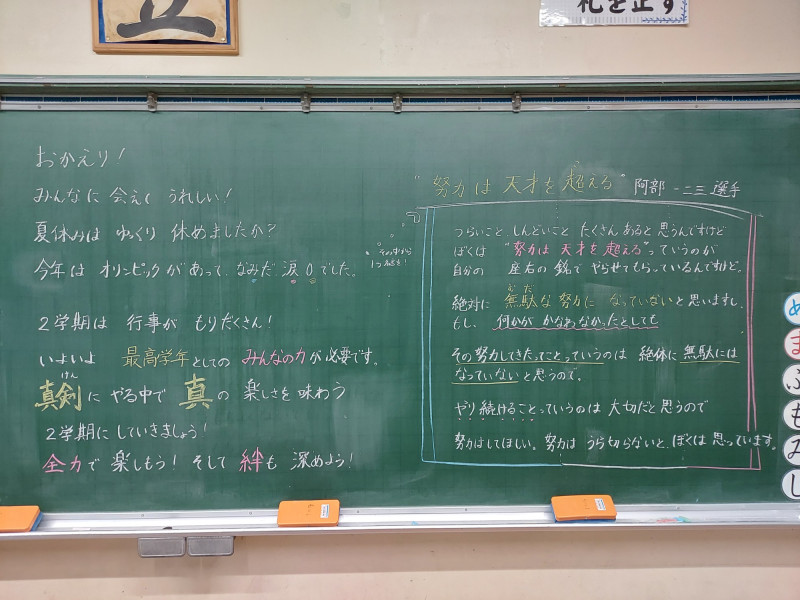 立
礼を正す
おかえり!
みんなに 会えて うれしい!
夏休みは ゆっくり 休めましたか?
今年は オリンピックがあって、なみだ 涙 でした。
2学期は 行事が もりだくさん!
いよいよ 最高学年としての みんなの力が必要です。
けん
真剣に やる中で 真の 楽しさを 味わう
2学期に していきましょう!
全力で 楽しもう! そして 絆も 深めよう!
"努力は 天才を 超える" 阿部 一二三 選手
つらいこと しんどいこと たくさん あると 思うんですけど
ぼくは "努力は 天才を超える"っていうのが
自分の 座右の 銘で やらせてもらっているんですけど。
むだ
絶対に 無駄な 努力に なっていないと思いますし、
もし、何かが かなわなかったとしても
その努力してきたってことっていうのは 絶体に 無駄には
なっていないと思うので。
やり続けることっていうのは 大切だと思うので
努力はしてほしい。努力は うら切らないと、ぼくは 思っています。
め
ま
ふ
も
み
し